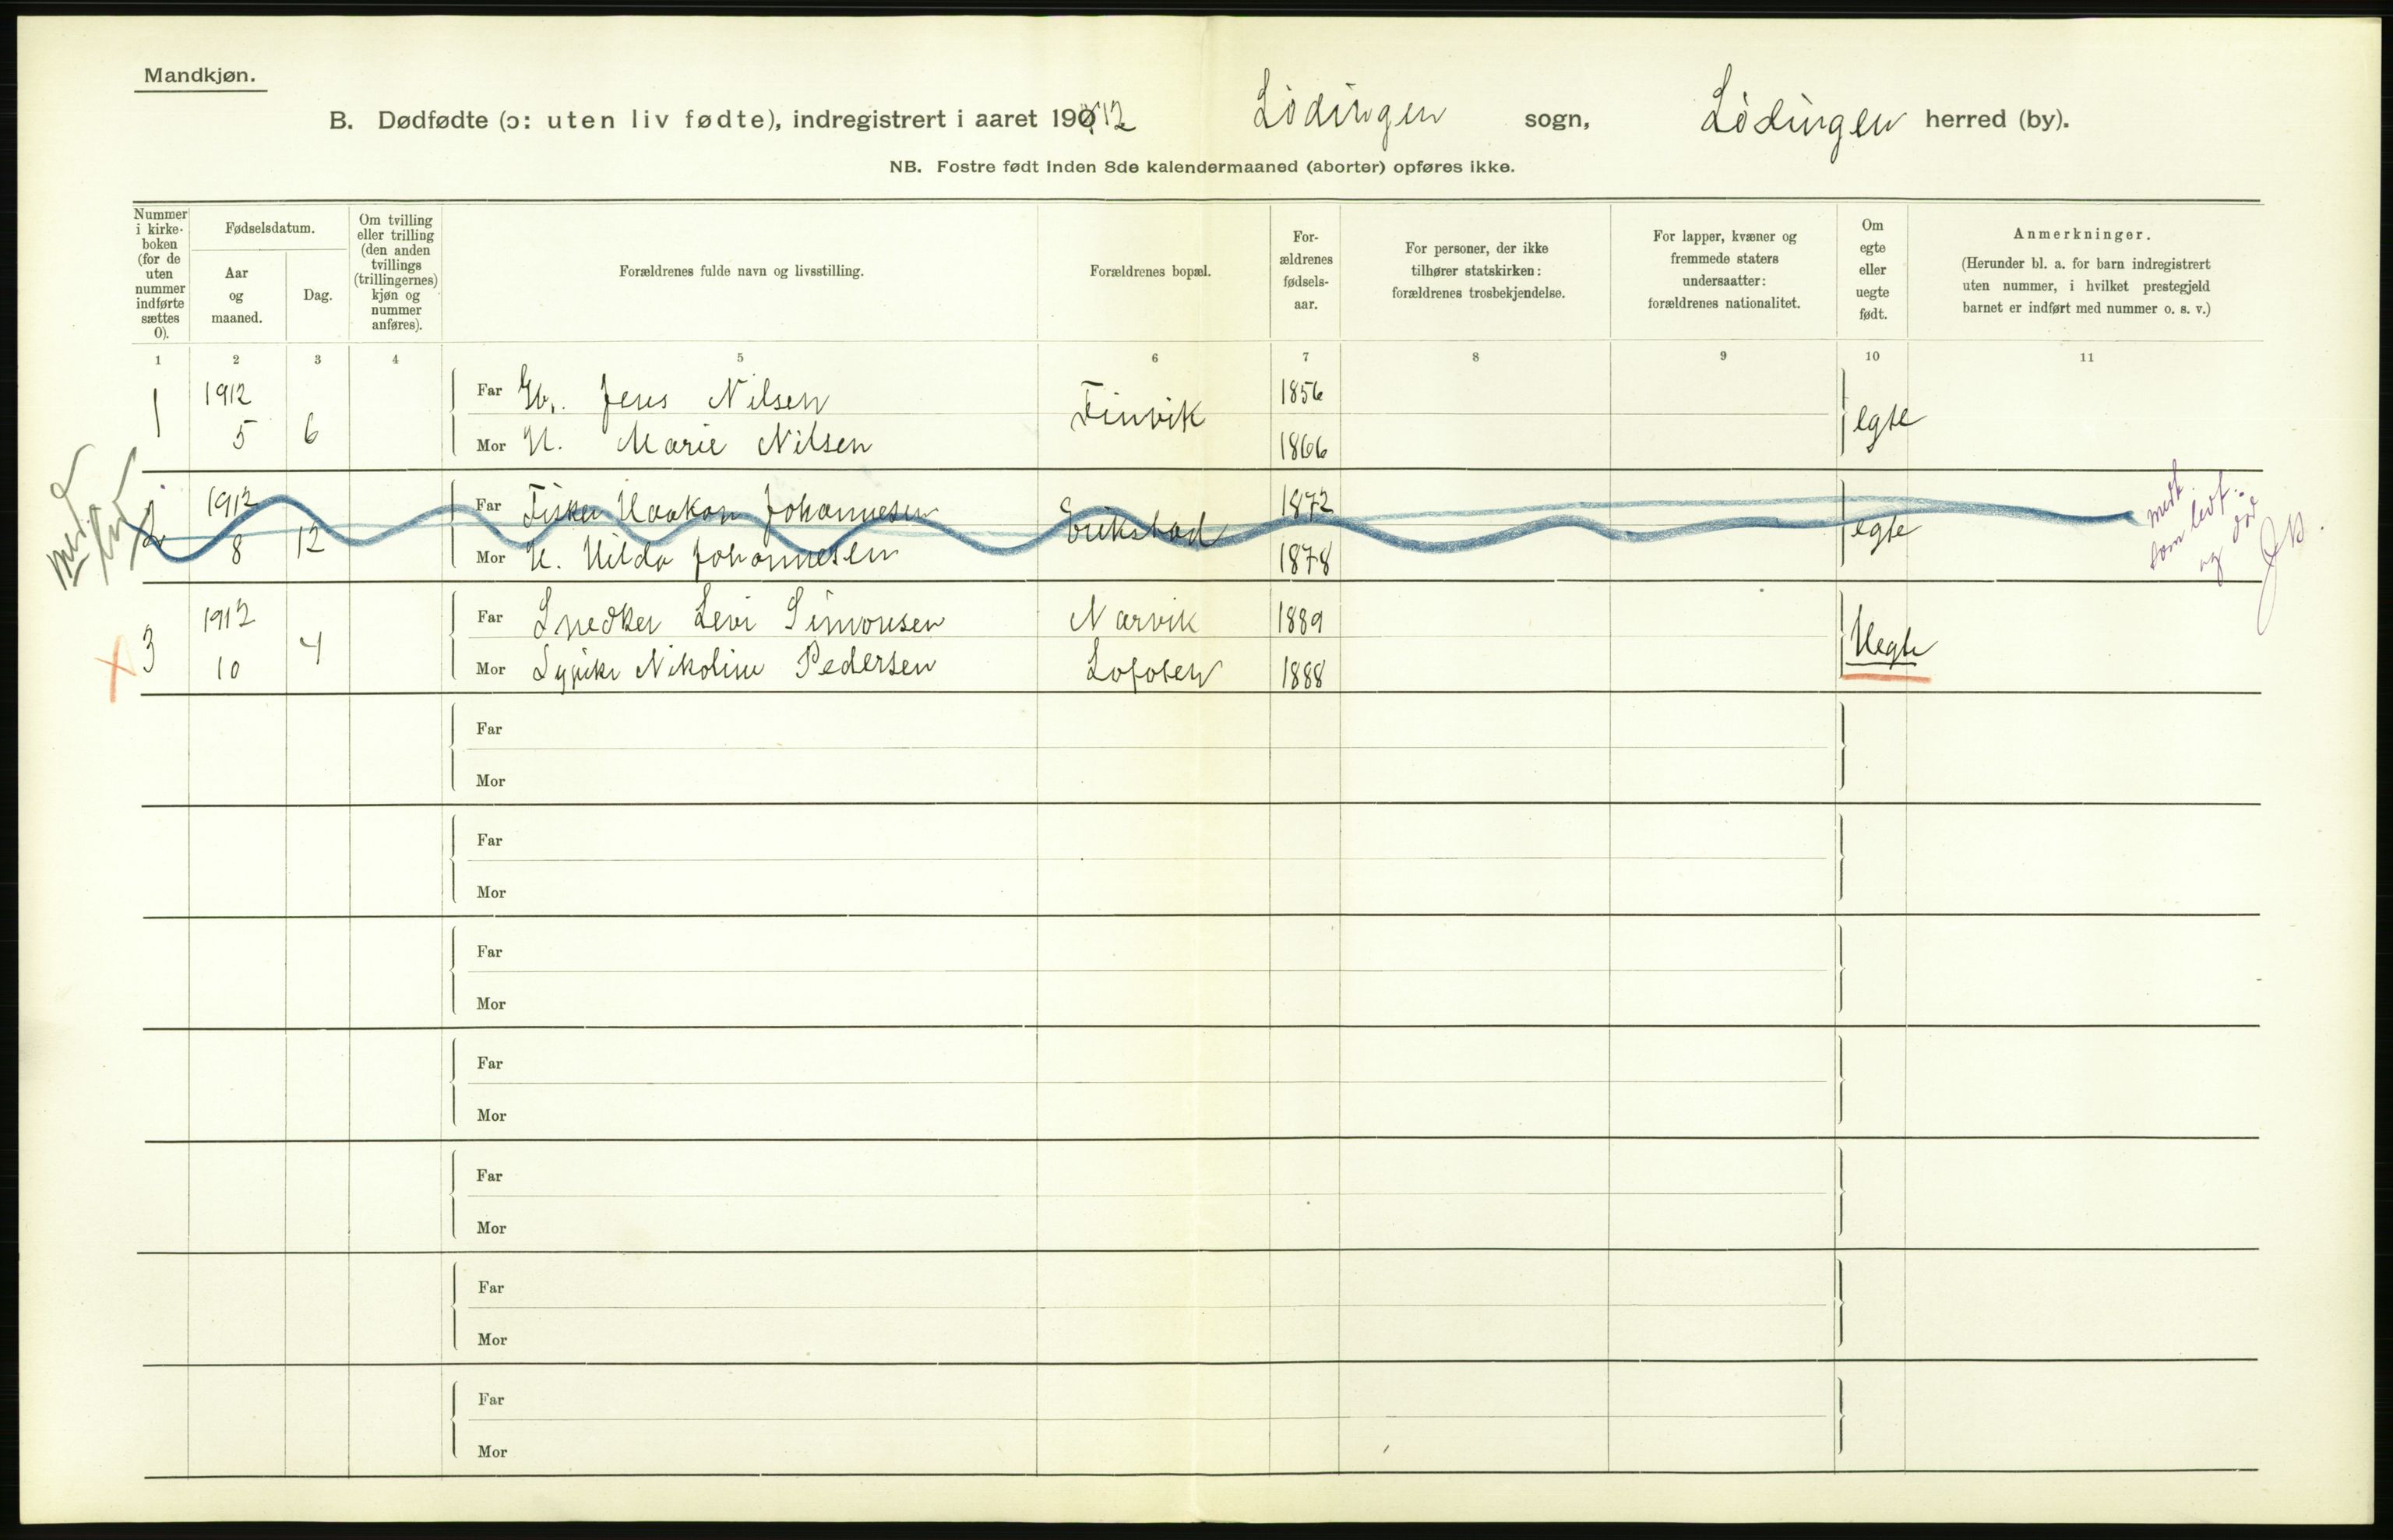 Mandkjøn.
B. Dødfødte (ɔ: uten liv fødte), indregistrert i aaret 1912 Lödingen sogn, Lödingen herred (by).
NB. Fostre født inden 8de kalendermaaned (aborter) opføres ikke.
Nummer i kirke-boken (for de uten nummer indførte sættes 0).
Fødselsdatum.
Aar og maaned.
Dag.
Om tvilling eller trilling (den anden tvillings (trillingernes) kjøn og nummer anføres).
Forældrenes fulde navn og livsstilling.
Forældrenes bopæl.
For-ældrenes fødsels-aar.
For personer, der ikke tilhører statskirken: forældrenes trosbekjendelse.
For lapper, kvæner og fremmede staters undersaatter: forældrenes nationalitet.
Om egte eller uegte født.
Anmerkninger.
(Herunder bl. a. for barn indregistrert uten nummer, i hvilket prestegjeld barnet er indført med nummer o. s. v.)
1 2 3 4 5 6 7 8 9 10 11
1 1912 5 6 Far Gb. Jens Nilsen Finvik 1856 egte
Mor H. Marie Nilsen 1866
2 1912 8 12 Far Fisker Haakon Johannesen Erikstad 1872 egte
Mor H. Hilda Johannesen 1878
medt. som levf. og død
3 1912 10 4 Far Snedker Levi Simonsen Narvik 1889 Uegte
Mor Nikoline Pedersen Lofoten 1888
Far
Mor
Far
Mor
Far
Mor
Far
Mor
Far
Mor
Far
Mor
Far
Mor